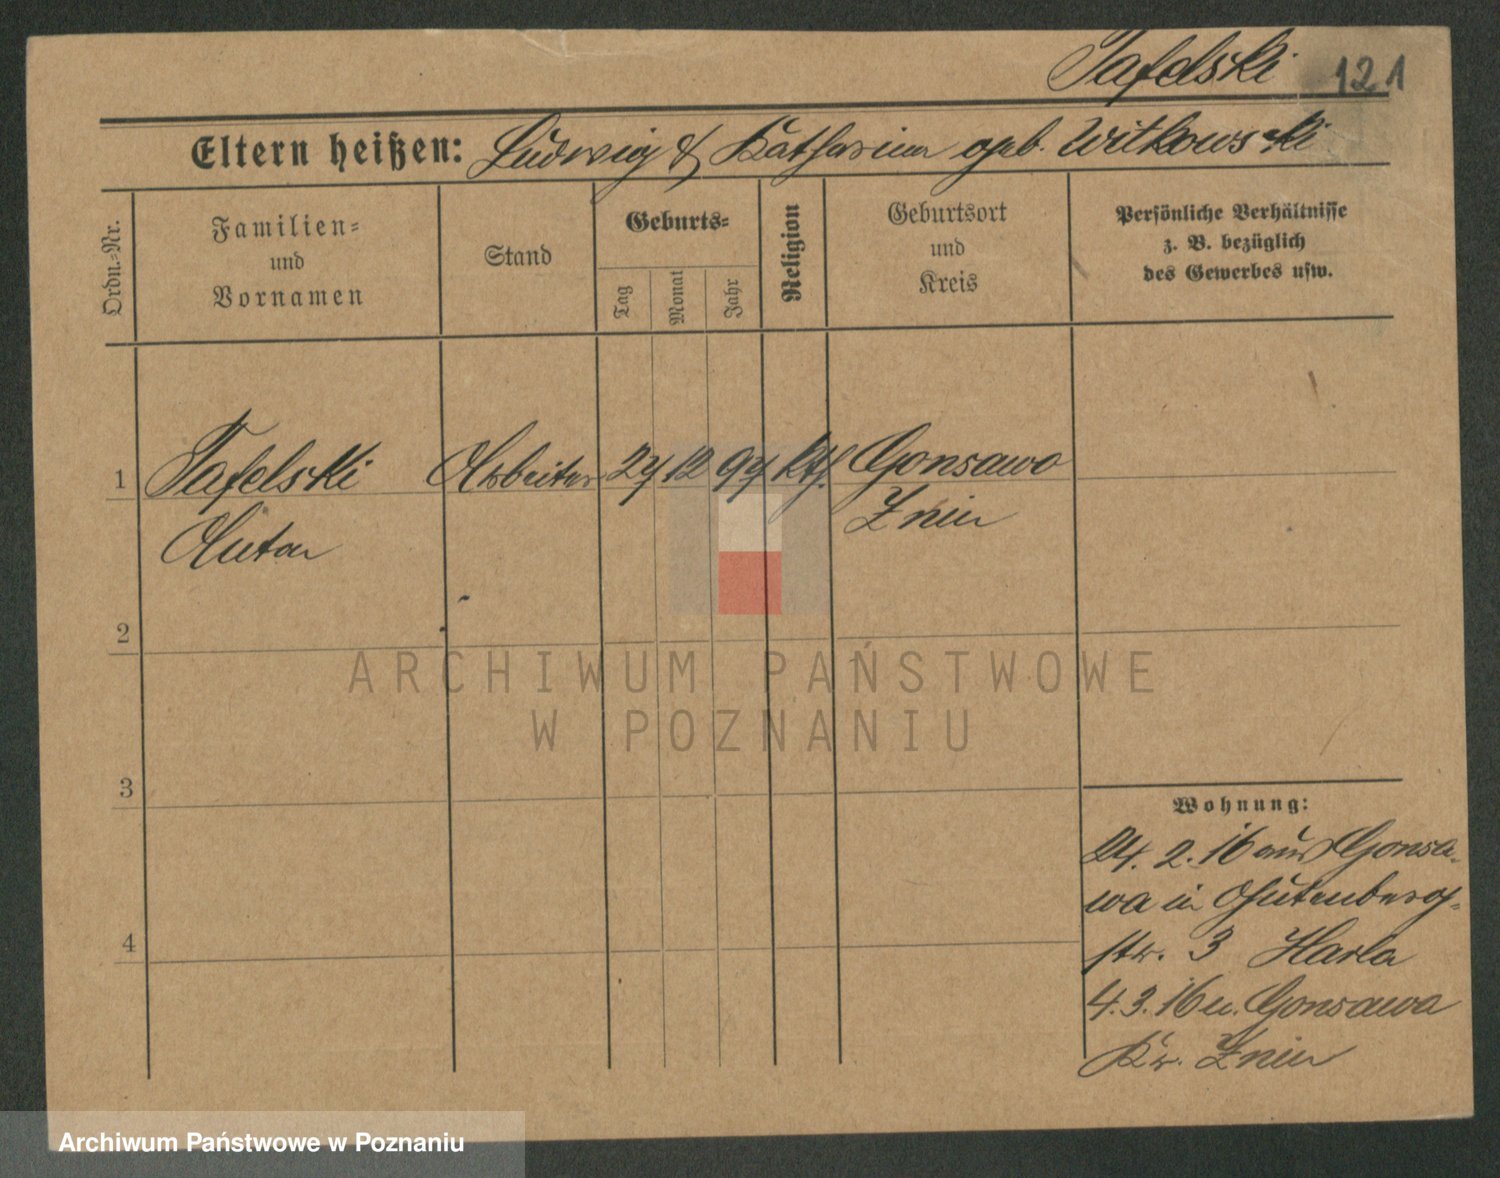 Tafelski 121
Eltern heißen: Ludwig & Katharina geb. Witkowski
Ordn.=Nr.
Familien=
und
Vornamen
Stand
Geburts=
Tag
Monat
Jahr
Religion
Geburtsort
und
Kreis
Persönliche Verhältnisse
z. B. bezüglich
des Gewerbes usw.
1 Tafelski Arbeiter 27 12 97 kth. Gonsawa
Anton Znin
2
3
4
ARCHIWUM PAŃSTWOWE
W POZNANIU
Wohnung:
24. 2. 16 aus Gonsa-
wa in Gutenberg-
str. 3
4.3.16 n. Gonsawa
Kr. Znin
Archiwum Państwowe w Poznaniu